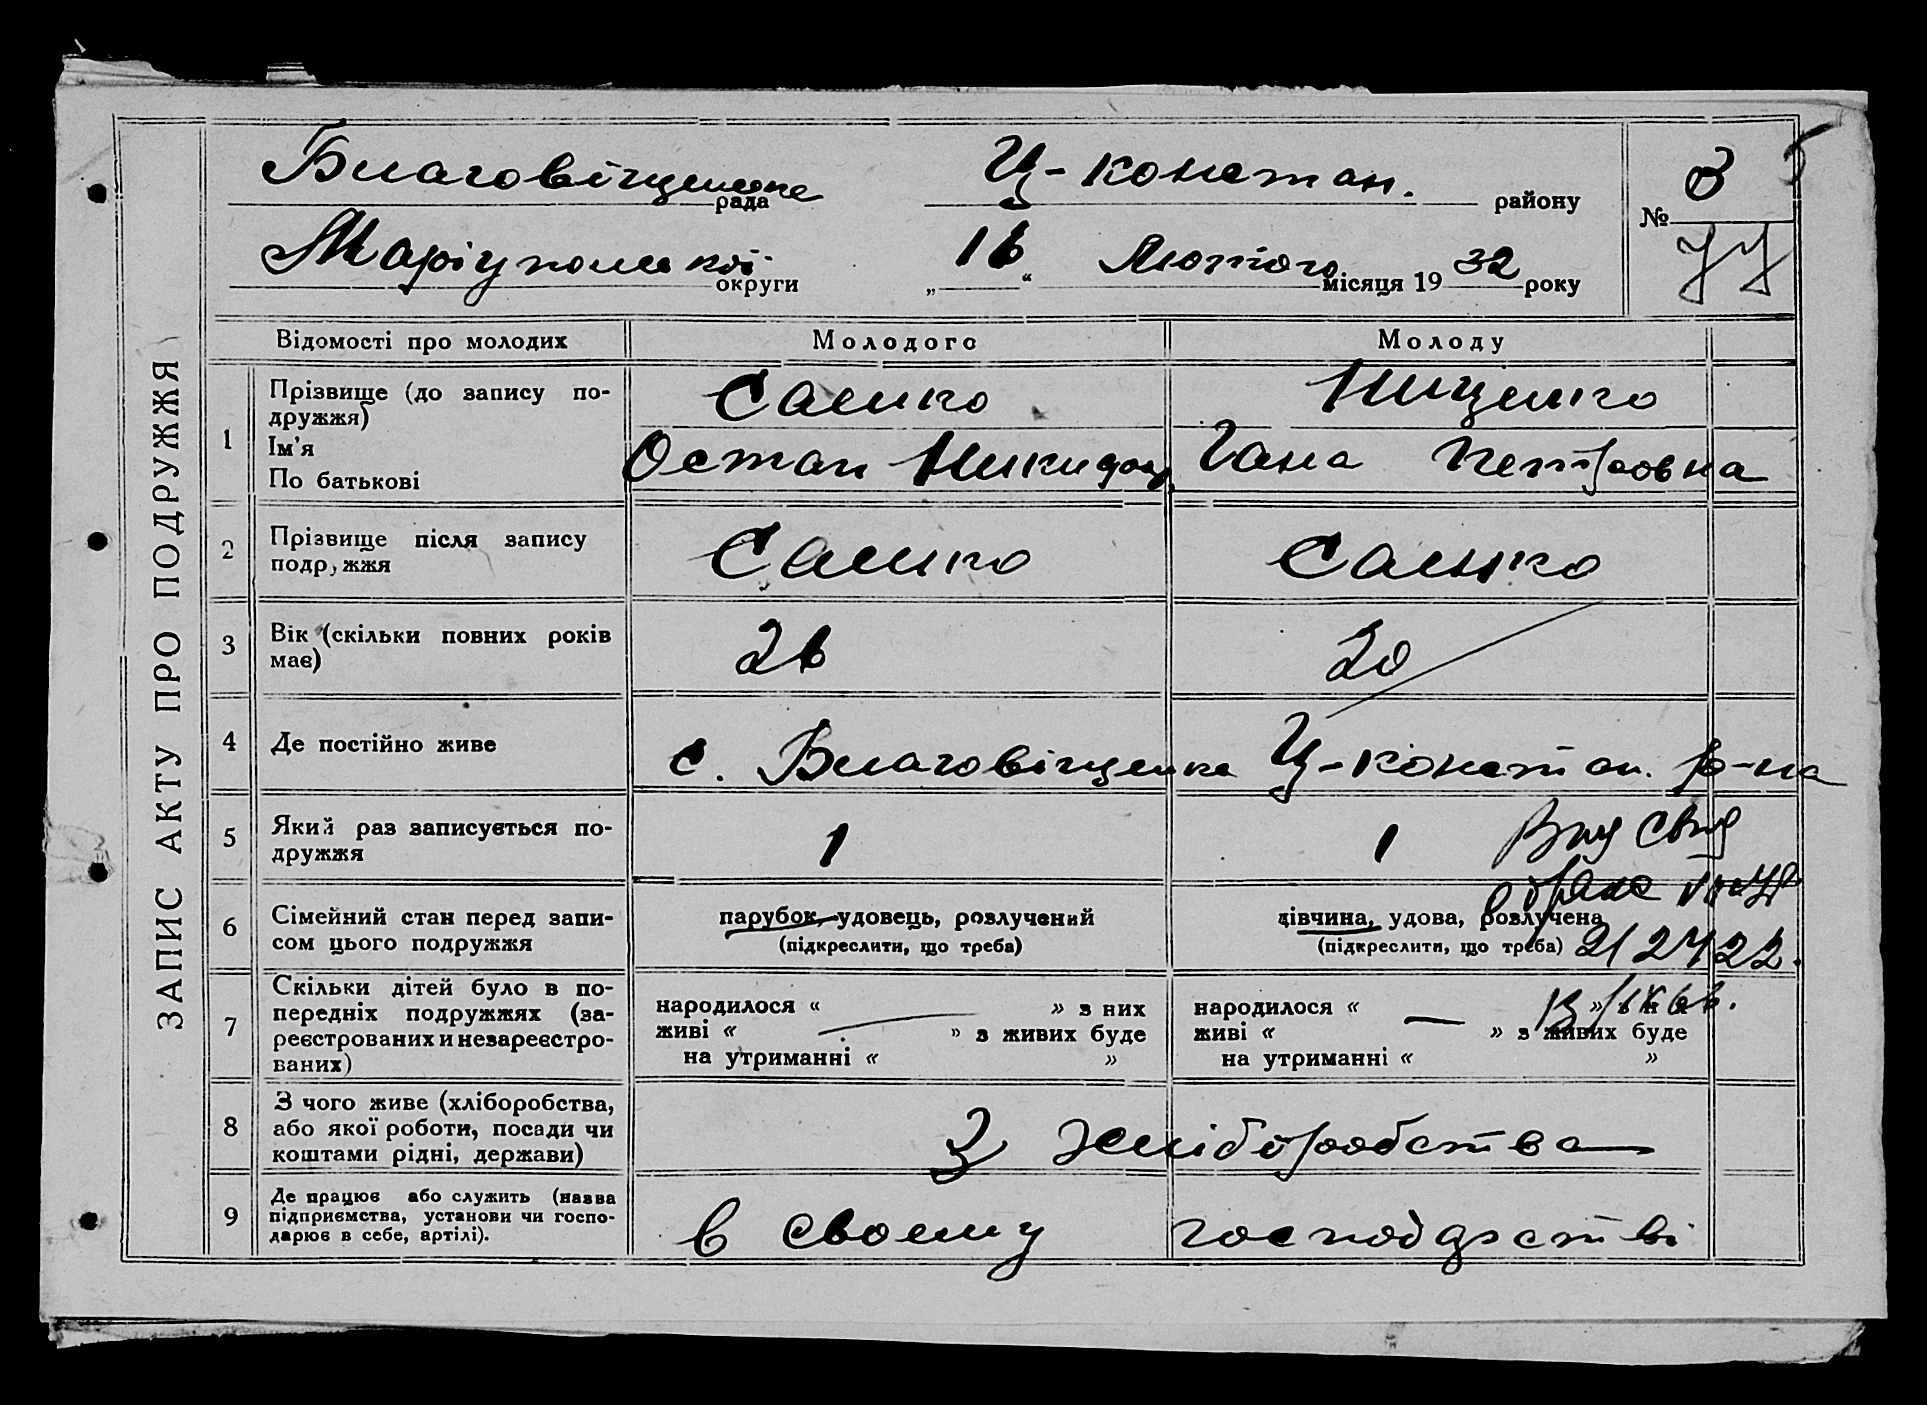 Благовіщенська рада Ц-констан. району
№ 3
Маріупольскої округи „16“ Лютого місяця 1932 року
77
ЗАПИС АКТУ ПРО ПОДРУЖЖЯ
Відомості про молодих Молодого Молоду
1 Прізвище (до запису по-
дружжя)
Ім'я
По батькові
Саенко Ниценко
Остап Никидов. Гана Петровна
2 Прізвище після запису
подружжя
Саенко Саенко
3 Вік (скільки повних років
має)
26 20
4 Де постійно живе с. Благовіщенка Ц-констан. р-на
5 Який раз записується по-
дружжя
1 1
6 Сімейний стан перед запи-
сом цього подружжя
парубок, удовець, розлучений
(підкреслити, що треба)
дівчина, удова, розлучена
(підкреслити, що треба)
7 Скільки дітей було в по-
передніх подружжях (за-
реєстрованих и незареєстро-
ваних)
народилося « » з них
живі « — » з живих буде
на утриманні « »
народилося « » з них
живі « — » з живих буде
на утриманні « »
8 З чого живе (хліборобства,
або якої роботи, посади чи
коштами рідні, держави)
З хліборобства
9 Де працює або служить (назва
підприємства, установи чи госпо-
дарює в себе, артілі).
в своему господарстві